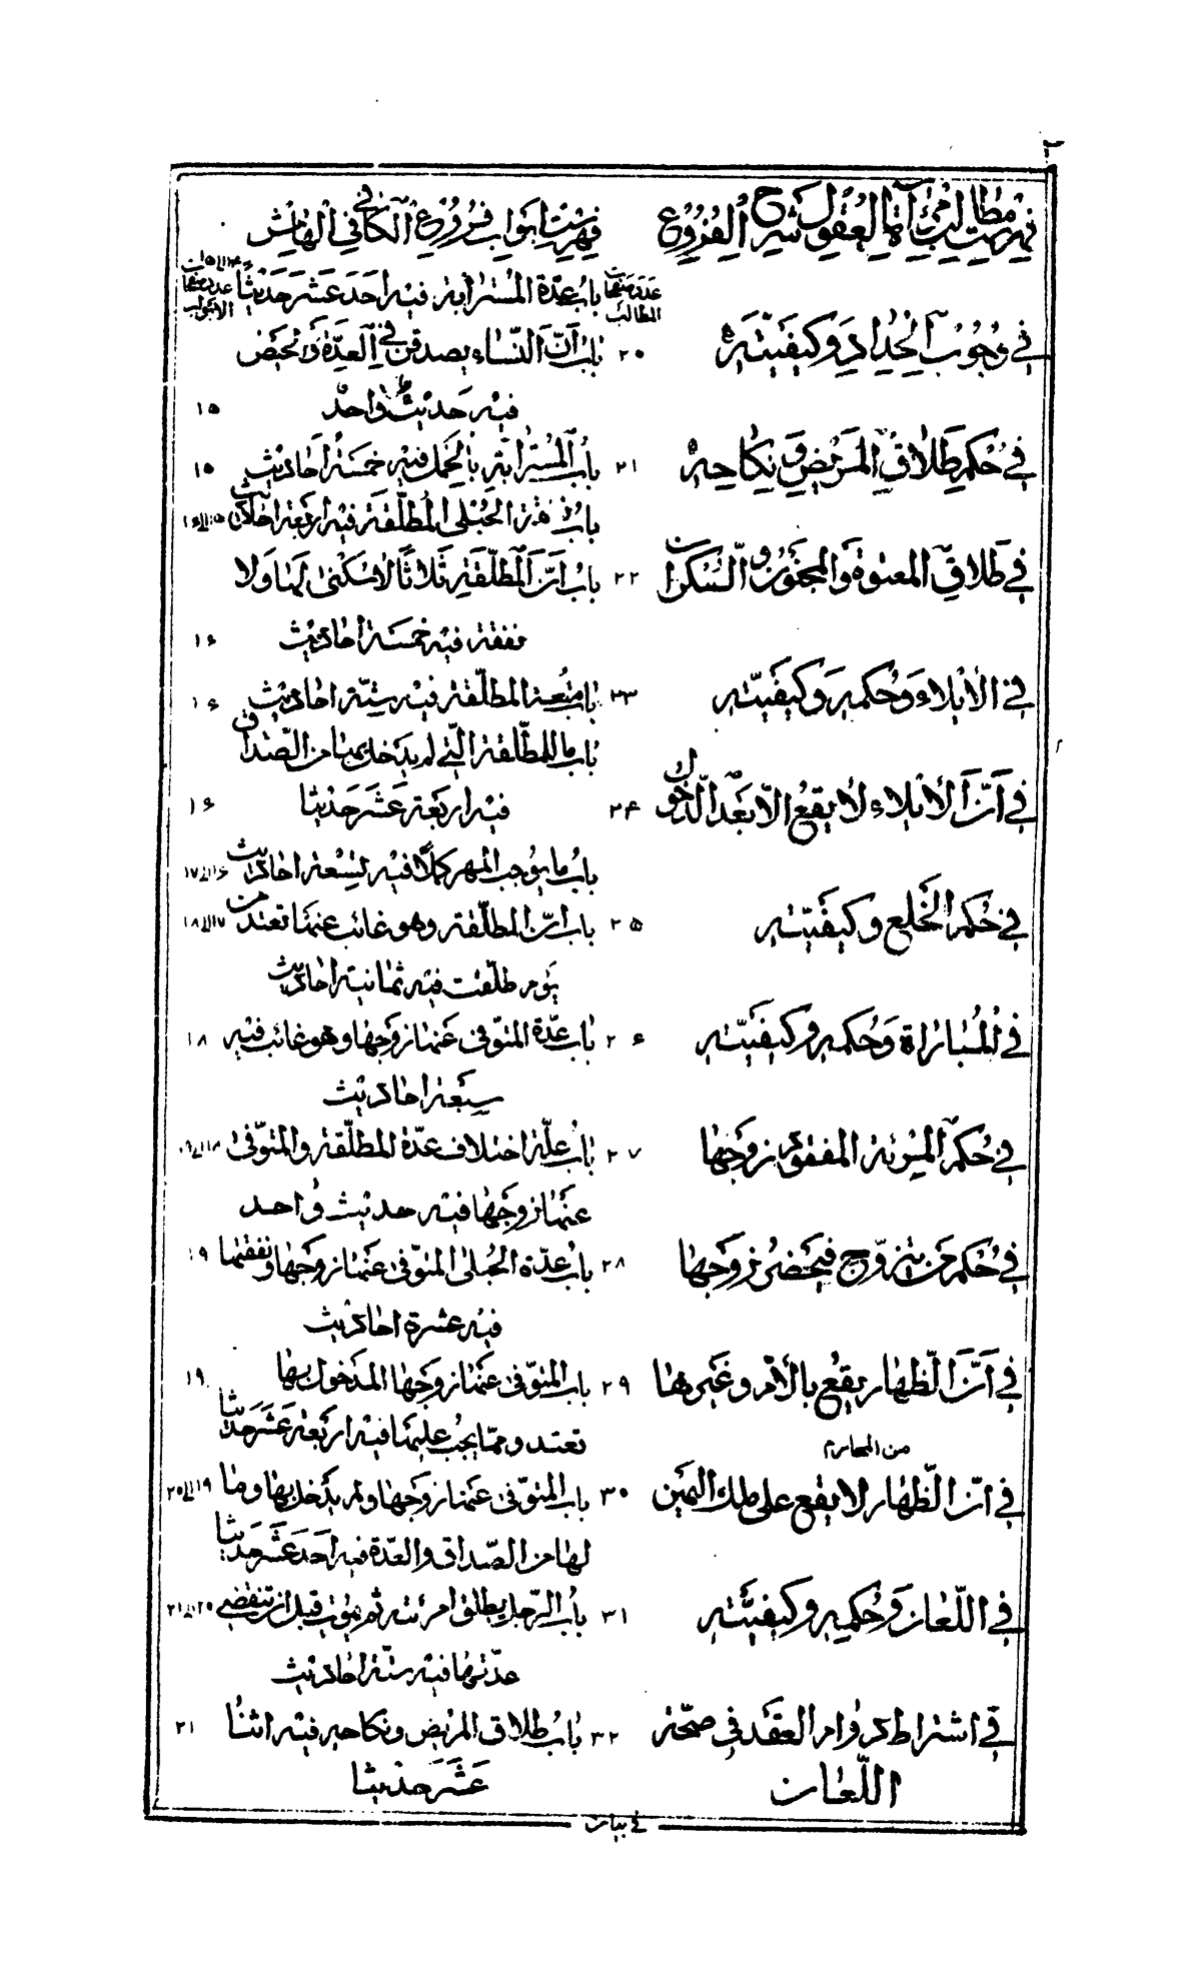 ٢
فهرست مطالب مرآة العقول شرح الفروع
فهرست ابواب فروع الكافي في الهامش
عدد صفحات المطالب
باب عدة المسترابة فيه احد عشر حديثا
عدد صفحات الابواب
في وجوب الحداد وكيفيته ٢٠
باب ان النساء يصدقن في العدة والحيض
فيه حديث واحد ١٥
في حكم طلاق المريض ونكاحه ٢١
باب المسترابة بالحمل فيه خمسة احاديث ١٥
باب نفقة الحبلى المطلقة فيه اربعة احاديث ١٥الى١۶
في طلاق المعتوة والمجنون والسكران ٢٢
باب ان المطلقة ثلاثا لا سكنى لها ولا
نفقة فيه خمسة احاديث ١۶
في الايلاء وحكمه وكيفيته ٢٣
باب متعة المطلقة فيه ستة احاديث ١۶
باب ما للمطلقة التي لم يدخل بها من الصداق
في ان الايلاء لا يقع الا بعد الدخول ٢۴
فيه اربعة عشر حديثا ١۶
باب ما يوجب المهر كملا فيه تسعة احاديث ١۶الى١٧
في حكم الخلع وكيفيته ٢۵
باب ان المطلقة وهو غائب عنها تعتد من ١٧الى١٨
يوم طلقت فيه ثمانية احاديث
في المباراة وحكمه وكيفيته ٢۶
باب عدة المتوفى عنها زوجها وهو غائب فيه ١٨
سبعة احاديث
في حكم المرئة المفقود زوجها ٢٧
باب علة اختلاف عدة المطلقة والمتوفى ١٨الى١٩
عنها زوجها فيه حديث واحد
في حكم من يتزوج فيحضر زوجها ٢٨
باب عدة الحبلى المتوفى عنها زوجها ونفقتها ١٩
فيه عشرة احاديث
في ان الظهار يقع بالام وغيرها ٢٩
من المحارم
باب المتوفى عنها زوجها المدخول بها ١٩
تعتد ومما يجب عليها فيه اربعة عشر حديثا
في ان الظهار لا يقع على ملك اليمين ٣٠
باب المتوفى عنها زوجها ولم يدخل بها وما ١٩الى٢٠
لها من الصداق والعدة فيه احد عشر حديثا
في اللعان وحكمه وكيفيته ٣١
باب الرجل يطلق امرئته ثم يموت قبل ان تنقضي ٢٠الى٢١
عدتها فيه ستة احاديث
في اشتراط دوام العقد في صحة ٣٢
اللعان
باب طلاق المريض ونكاحه فيه اثنا ٢١
عشر حديثا
في بيان